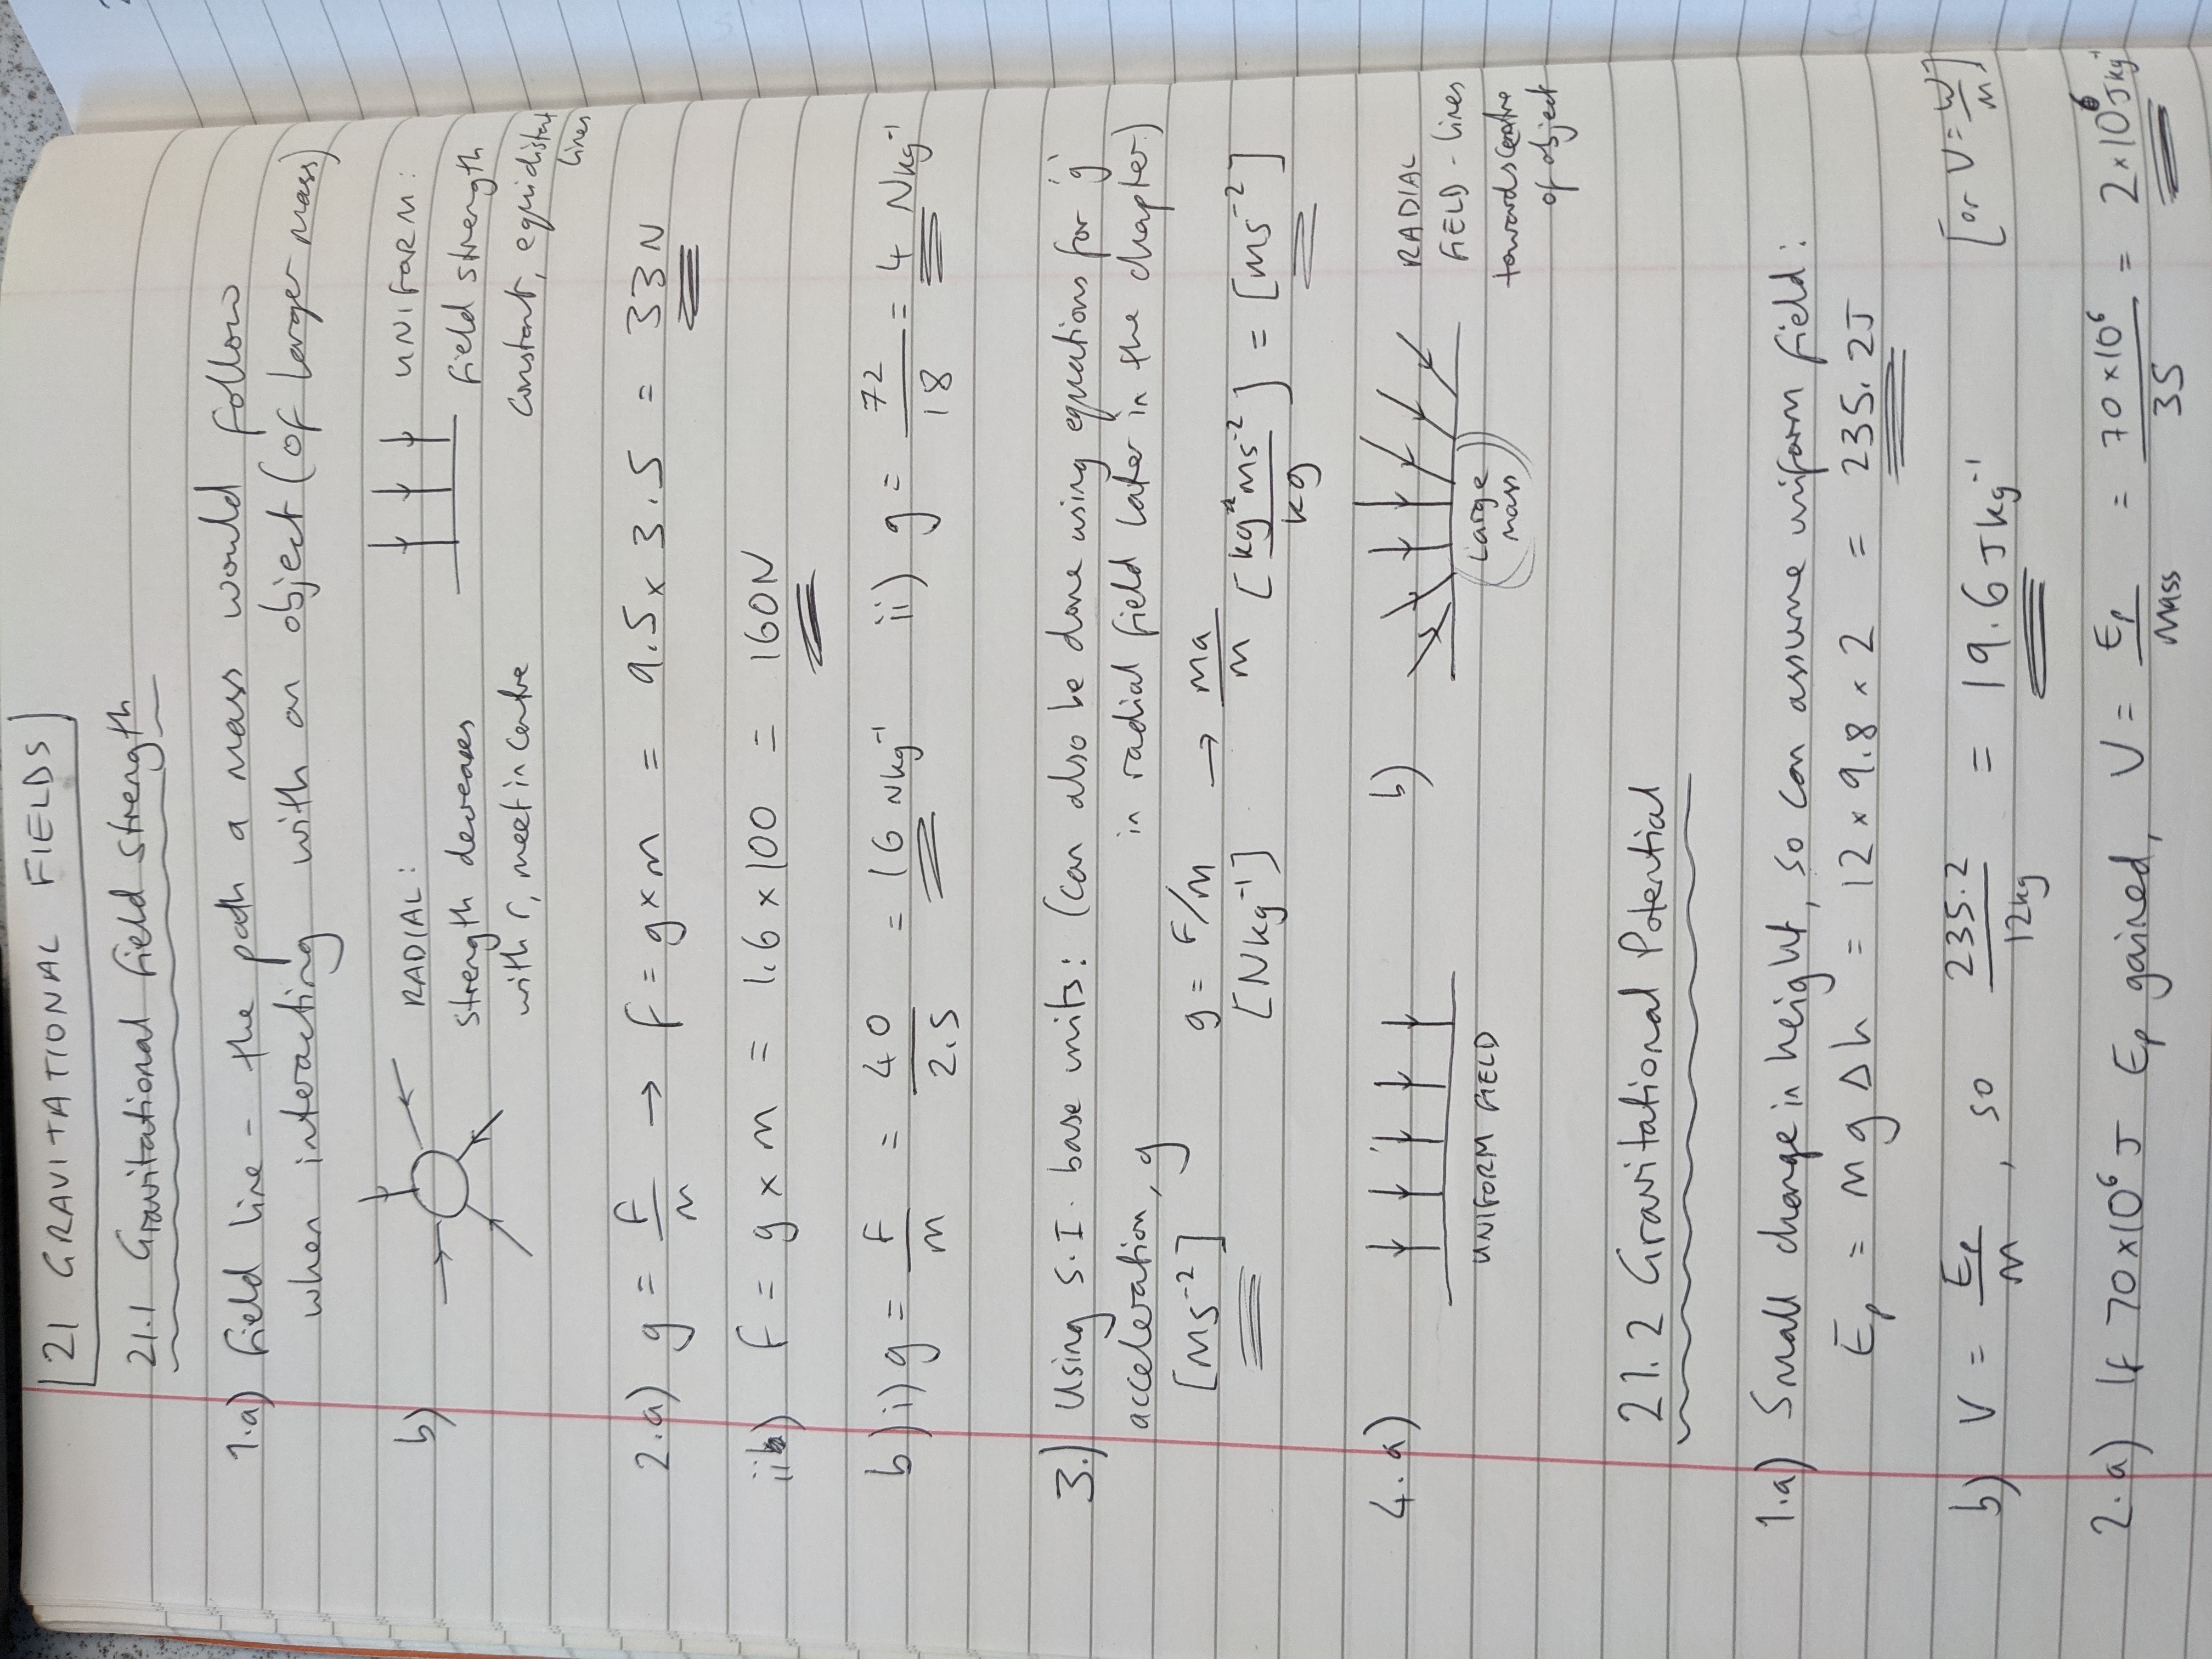 21 GRAVITATIONAL FIELDS
21.1 Gravitational field strength
1.a) Field line - the path a mass would follow
when interacting with an object (of larger mass)
b) RADIAL: UNIFORM:
strength decreases field strength
with r, meet in centre constant, equidistant
lines
2.a) g = F/m → F = g×m = 9.5 × 3.5 = 33N
ii) F = g × m = 1.6 × 100 = 160N
b) i) g = F/m = 40/2.5 = 16 Nkg⁻¹ ii) g = 72/18 = 4 Nkg⁻¹
3.) Using S.I. base units: (can also be done using equations for 'g'
in radial field later in the chapter.)
acceleration, g g = F/m → ma/m
[ms⁻²] [Nkg⁻¹] [kg ms⁻²/kg] = [ms⁻²]
4.a) b) RADIAL
FIELD - lines
towards centre
of object
UNIFORM FIELD
Large
mass
21.2 Gravitational Potential
1.a) Small change in height, so can assume uniform field:
Ep = mgΔh = 12 × 9.8 × 2 = 235.2J
b) V = Ep/m, so 235.2/12kg = 19.6 Jkg⁻¹ [or V = W/m]
2.a) If 70×10⁶ J Ep gained, V = Ep/mass = 70×10⁶/35 = 2×10⁶ Jkg⁻¹